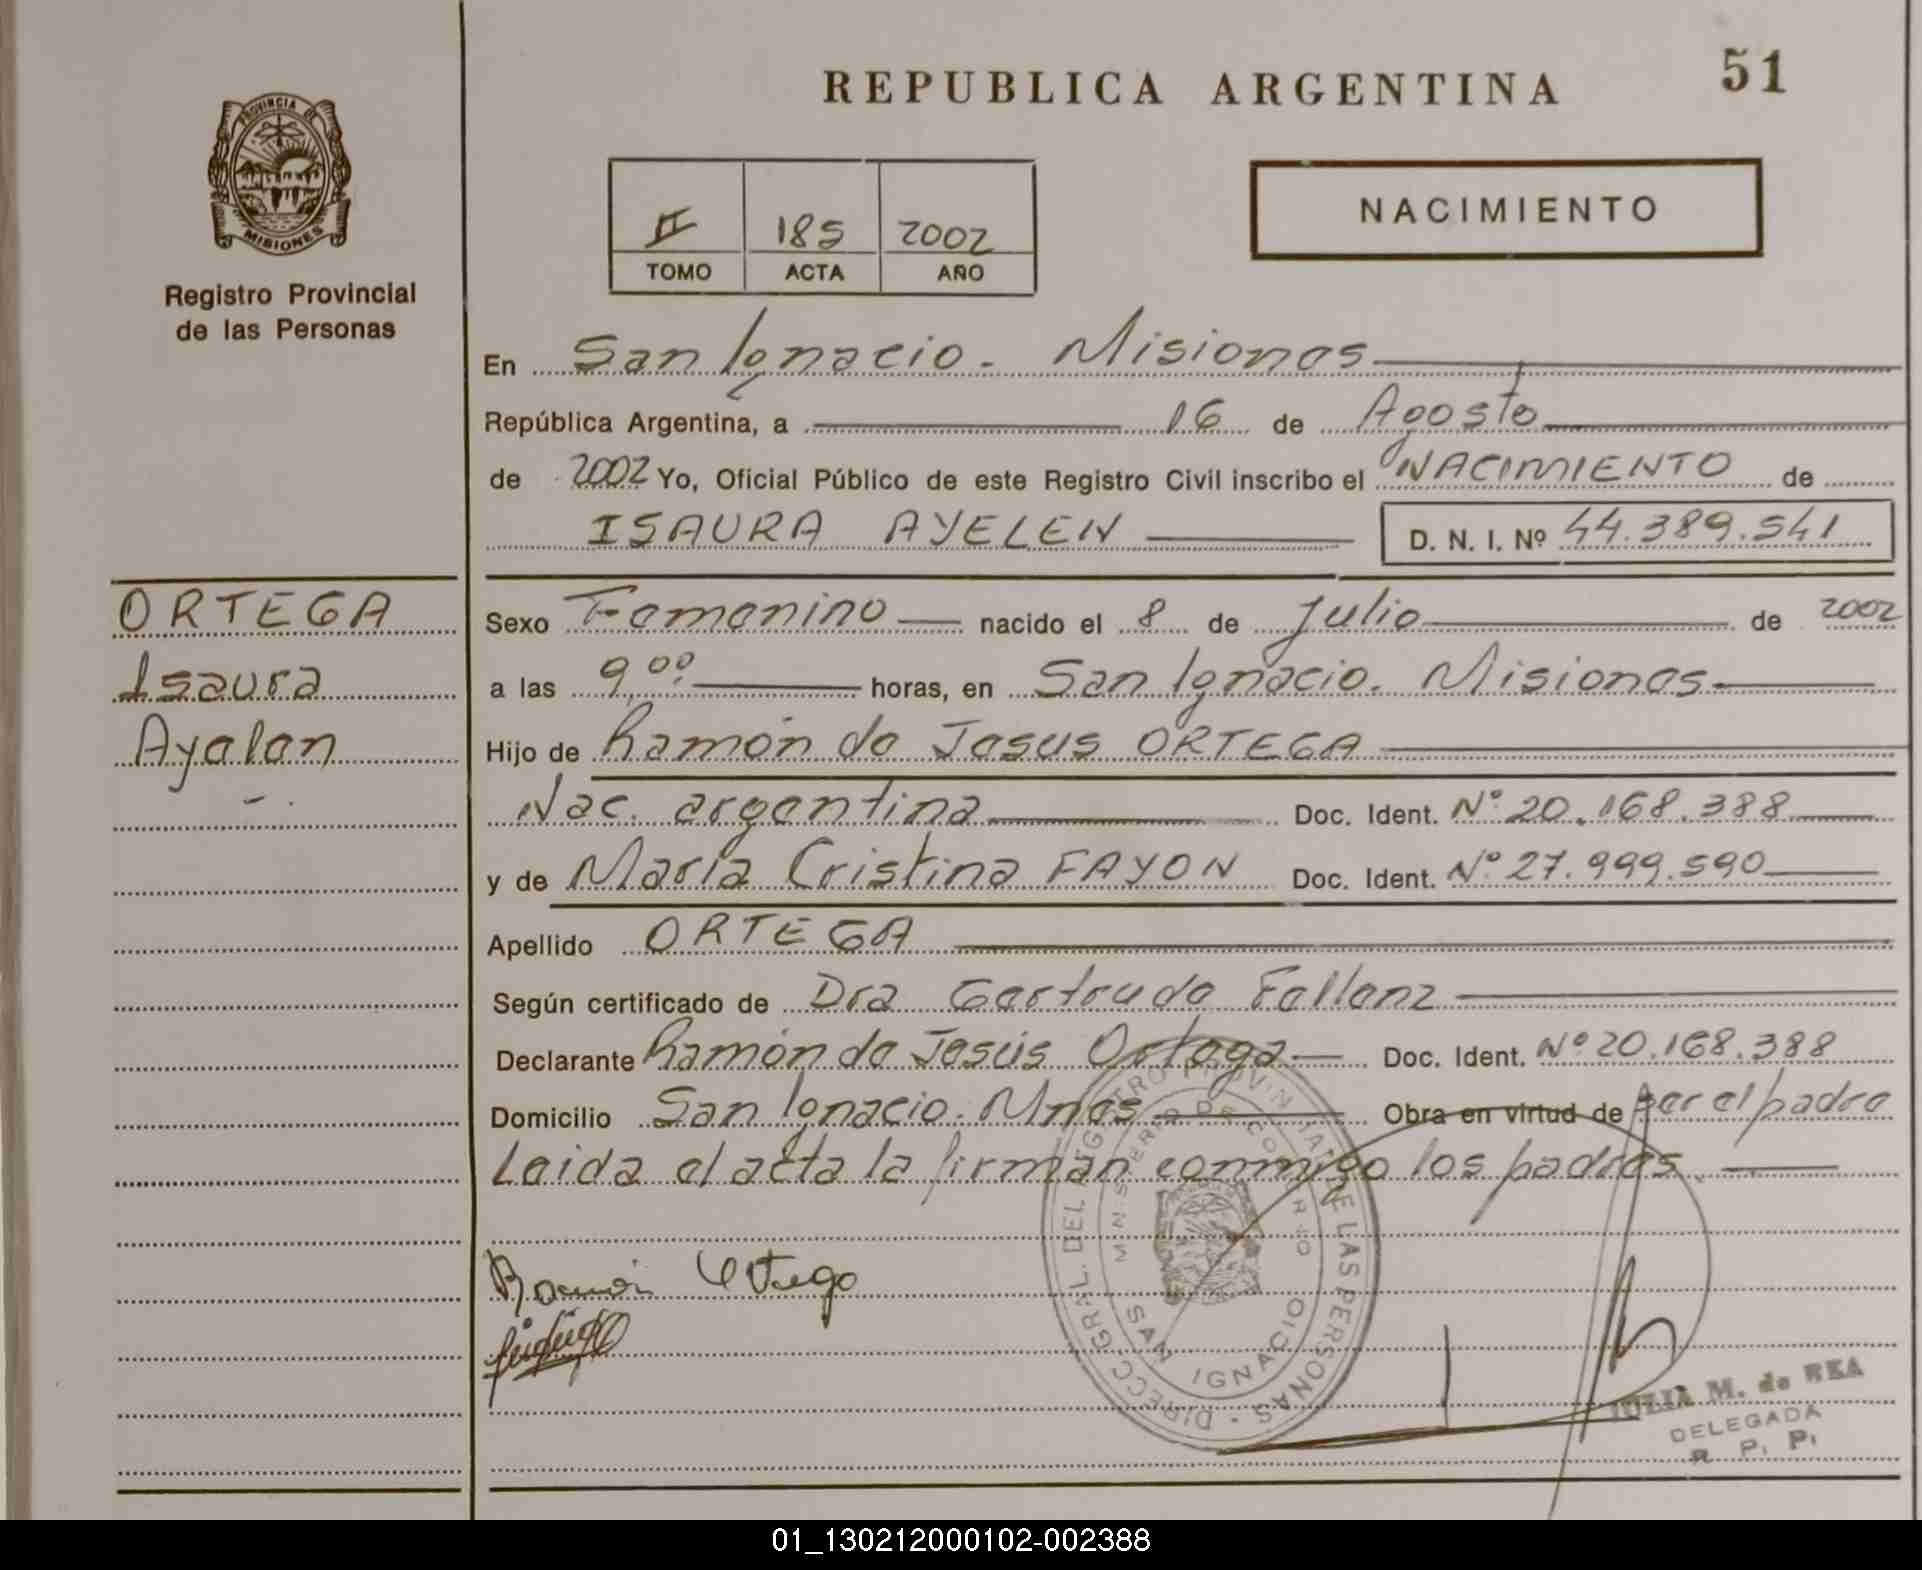 REPUBLICA ARGENTINA
51
PROVINCIA DE
MISIONES
Registro Provincial
de las Personas
II 185 2002
TOMO ACTA AÑO
NACIMIENTO
En San Ignacio - Misiones
República Argentina, a 16 de Agosto
de 2002 Yo, Oficial Público de este Registro Civil inscribo el NACIMIENTO de
ISAURA AYELEN D. N. I. Nº 44.389.541
ORTEGA
Isaura
Ayelen
Sexo Femenino nacido el 8 de Julio de 2002
a las 9,00 horas, en San Ignacio. Misiones
Hijo de Ramón de Jesus ORTEGA
Nac. argentina Doc. Ident. Nº 20.168.388
y de María Cristina FAYON Doc. Ident. Nº 27.999.590
Apellido ORTEGA
Según certificado de Dra Gertrude Fellenz
Declarante Ramón de Jesús Ortega Doc. Ident. Nº 20.168.388
Domicilio San Ignacio. Mnes Obra en virtud de ser el padre
Leida el acta la firman conmigo los padres.
Ramón Ortega
DIRECC. GRAL. DEL REGISTRO PROVINCIAL DE LAS PERSONAS
MINISTERIO DE GOBIERNO
SAN IGNACIO
JULIA M. de REA
DELEGADA
R. P. P.
01_130212000102-002388